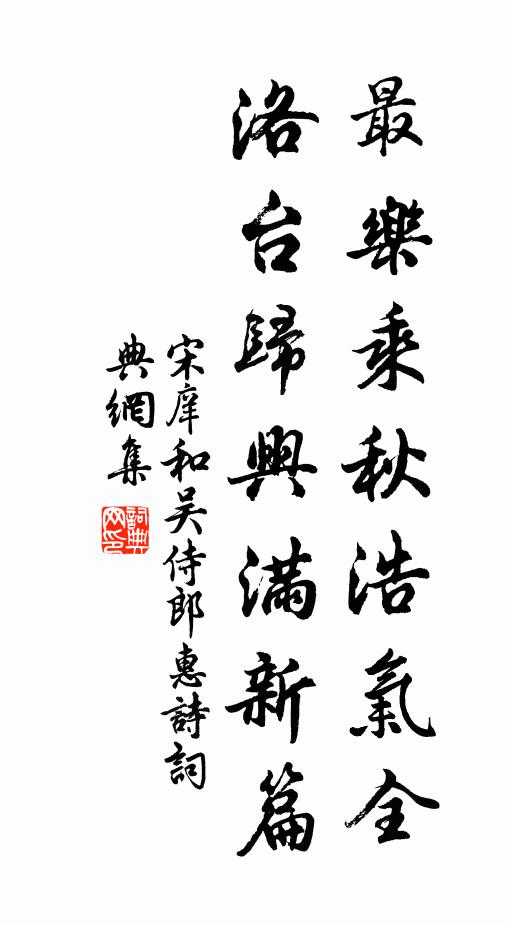 最樂乘秋浩氣全
洛台歸興滿新篇
宋庠和吴侍郎惠詩詞
典網集
詞典
网印